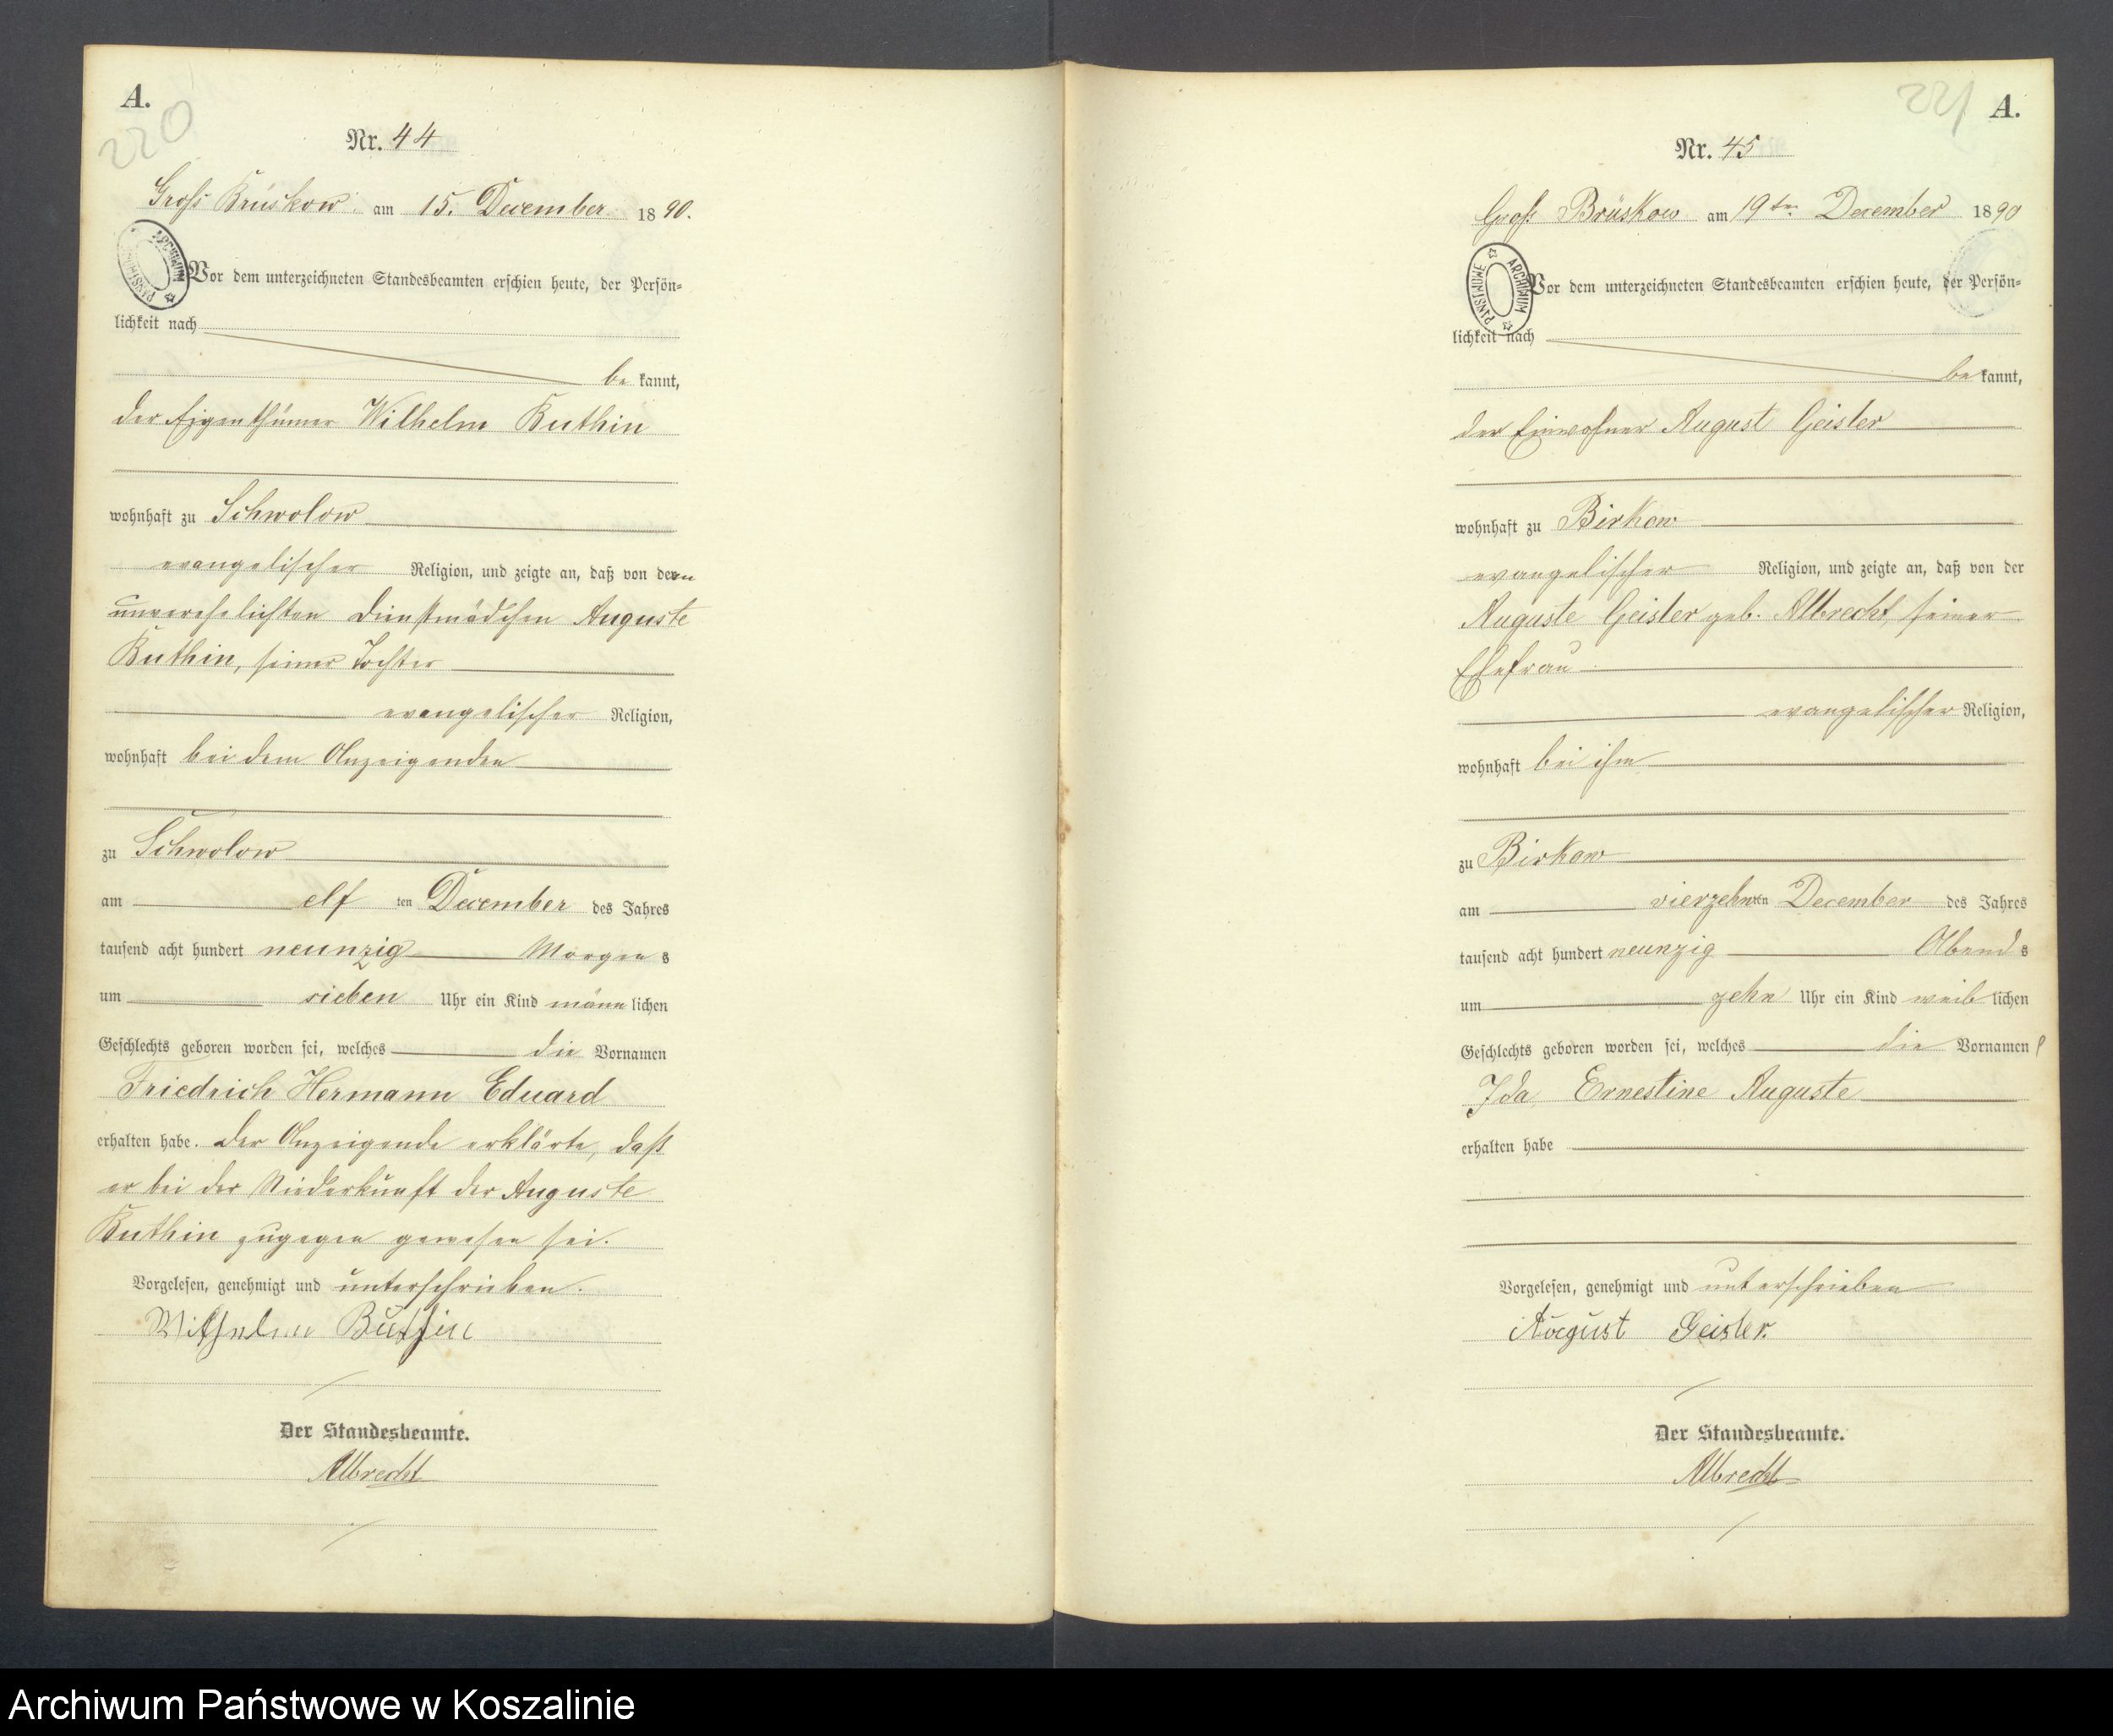 A.
220
Nr. 44
Groß Brüskow am 15. December 1890.
PAŃSTWOWE ARCHIWUM
Vor dem unterzeichneten Standesbeamten erschien heute, der Persön=
lichkeit nach
be kannt,
der Eigenthümer Wilhelm Buthin
wohnhaft zu Schwolow
evangelischer Religion, und zeigte an, daß von der
unverehelichten Dienstmädchen Auguste
Buthin, seiner Tochter
evangelischer Religion,
wohnhaft bei dem Anzeigenden
zu Schwolow
am elf ten December des Jahres
tausend acht hundert neunzig Morgen s
um sieben Uhr ein Kind männ lichen
Geschlechts geboren worden sei, welches die Vornamen
Friedrich Hermann Eduard
erhalten habe. Der Anzeigende erklärte, daß
er bei der Niederkunft der Auguste
Buthin zugegen gewesen sei.
Vorgelesen, genehmigt und unterschrieben.
Wilhelm Buthin
Der Standesbeamte.
Albrecht
221
A.
Nr. 45
Groß Brüskow am 19ten December 1890
PAŃSTWOWE ARCHIWUM
Vor dem unterzeichneten Standesbeamten erschien heute, der Persön=
lichkeit nach
be kannt,
der Einwohner August Geisler
wohnhaft zu Birkow
evangelischer Religion, und zeigte an, daß von der
Auguste Geisler geb. Albrecht, seiner
Ehefrau
evangelischer Religion,
wohnhaft bei ihm
zu Birkow
am vierzehnten December des Jahres
tausend acht hundert neunzig Abend s
um zehn Uhr ein Kind weib lichen
Geschlechts geboren worden sei, welches die Vornamen
Ida Ernestine Auguste
erhalten habe
Vorgelesen, genehmigt und unterschrieben
August Geisler.
Der Standesbeamte.
Albrecht
Archiwum Państwowe w Koszalinie